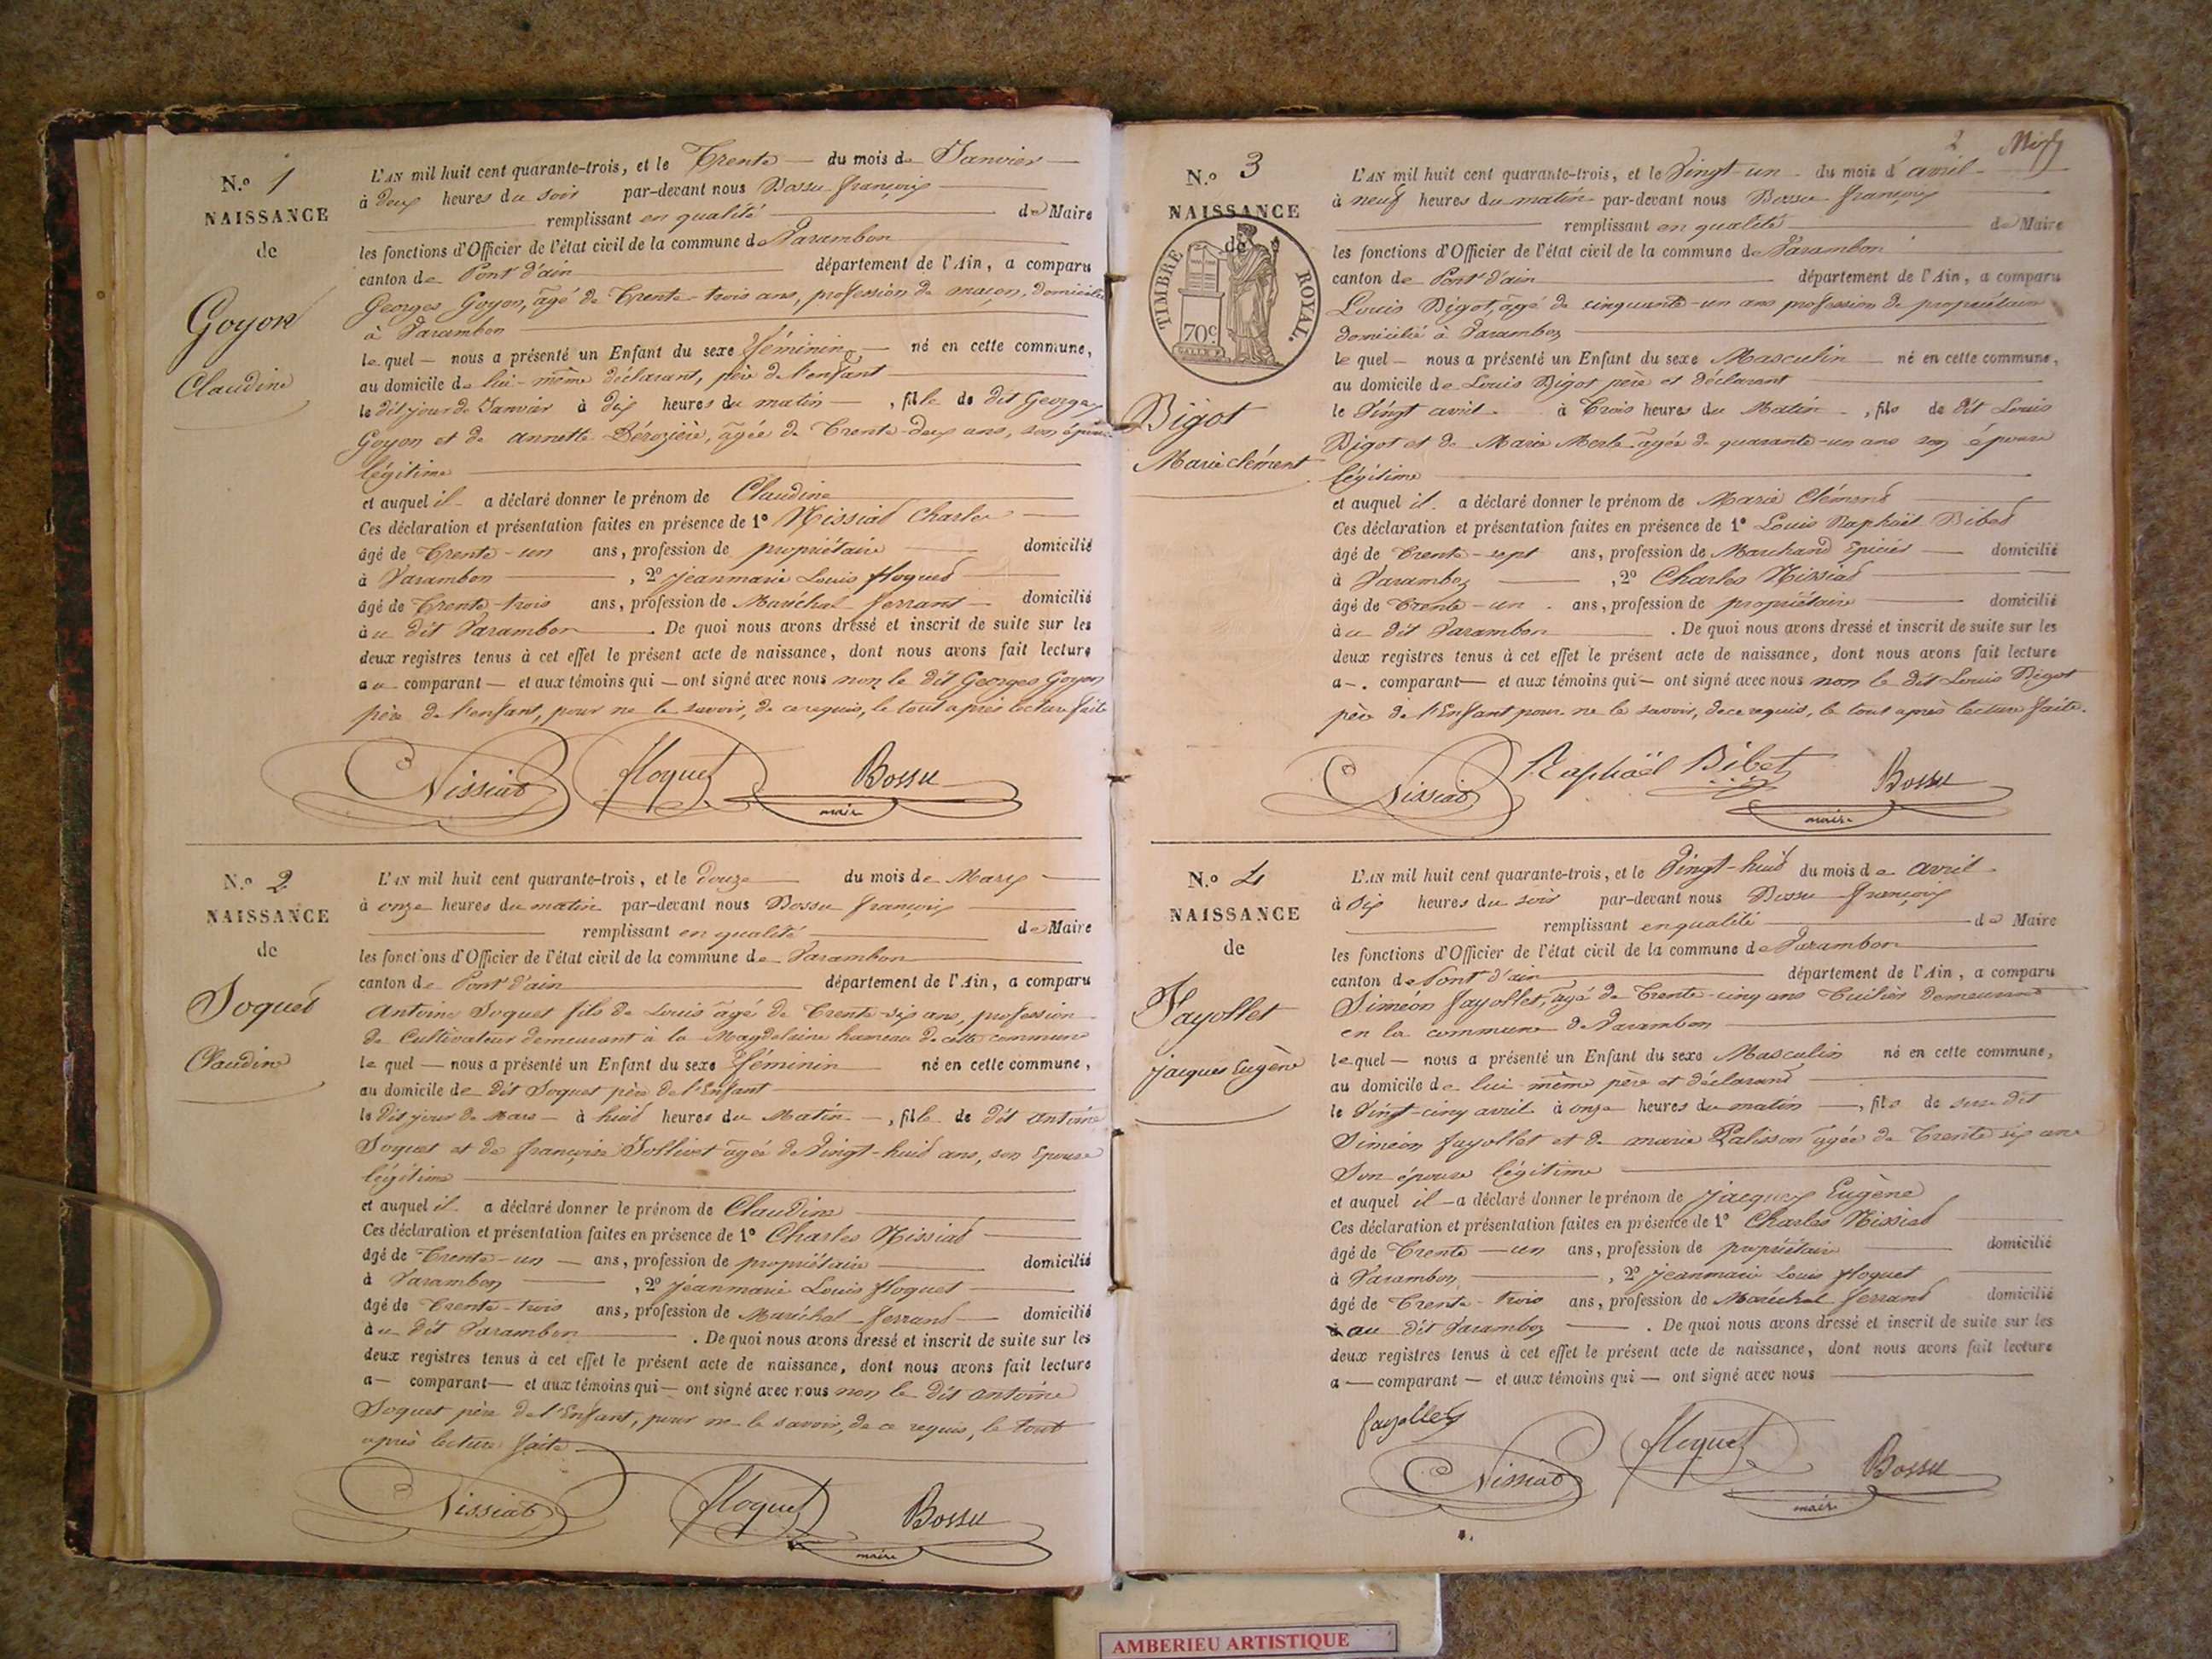 N.º 1
NAISSANCE
de
Goyon
Claudine
L'AN mil huit cent quarante-trois, et le Trente du mois de Janvier
à deux heures du soir par-devant nous Bossu françois
remplissant en qualité de Maire
les fonctions d'Officier de l'état civil de la commune de Varambon
canton de Pont d'ain département de l'Ain, a comparu
Georges Goyon, âgé de Trente-trois ans, profession de maçon, domicilié
à Varambon
le quel nous a présenté un Enfant du sexe féminin né en cette commune,
au domicile de lui-même déclarant, père de l'enfant
le dit jour de Janvier à dix heures du matin, fille de dit Georges
Goyon et de annette Dérozière, agée de Trente-deux ans, son épouse
légitime
et auquel il a déclaré donner le prénom de Claudine
Ces déclaration et présentation faites en présence de 1º Nissiat Charles
âgé de Trente-un ans, profession de propriétaire domicilié
à Varambon, 2º Jeanmarie Louis floquet
âgé de Trente-trois ans, profession de Maréchal ferrant domicilié
à u dit Varambon. De quoi nous avons dressé et inscrit de suite sur les
deux registres tenus à cet effet le présent acte de naissance, dont nous avons fait lecture
au comparant et aux témoins qui ont signé avec nous non le dit Georges Goyon
père de l'enfant, pour ne le savoir, de ce requis, le tout après lecture faite
Nissiat floquet Bossu
maire
N.º 2
NAISSANCE
de
Soquet
Claudine
L'AN mil huit cent quarante-trois, et le douze du mois de Mars
à onze heures du matin par-devant nous Bossu françois
remplissant en qualité de Maire
les fonctions d'Officier de l'état civil de la commune de Varambon
canton de Pont d'ain département de l'Ain, a comparu
Antoine Soquet fils de Louis âgé de Trente-six ans, profession
de Cultivateur demeurant à la Magdelaine hameau de cette commune
le quel nous a présenté un Enfant du sexe féminin né en cette commune,
au domicile de dit Soquet père de l'Enfant
le dit jour de Mars à huit heures du Matin, fille de dit antoine
Soquet et de françoise agée de Vingt-huit ans, son Epouse
légitime
et auquel il a déclaré donner le prénom de Claudine
Ces déclaration et présentation faites en présence de 1º Charles Nissiat
âgé de Trente-un ans, profession de propriétaire domicilié
à Varambon, 2º Jeanmarie Louis floquet
âgé de Trente-trois ans, profession de Maréchal ferrant domicilié
à u dit Varambon. De quoi nous avons dressé et inscrit de suite sur les
deux registres tenus à cet effet le présent acte de naissance, dont nous avons fait lecture
a comparant et aux témoins qui ont signé avec nous non le dit antoine
Soquet père de l'Enfant, pour ne le savoir, de ce requis, le tout
après lecture faite
Nissiat floquet Bossu
maire
2
N.º 3
NAISSANCE
de
TIMBRE ROYAL.
70c
Bigot
Marie clément
L'AN mil huit cent quarante-trois, et le Vingt-un du mois d'avril
à neuf heures du matin par-devant nous Bossu françois
remplissant en qualité de Maire
les fonctions d'Officier de l'état civil de la commune de Varambon
canton de Pont d'ain département de l'Ain, a comparu
Louis Bigot, âgé de cinquante-un ans profession de propriétaire
domicilié à Varambon
le quel nous a présenté un Enfant du sexe Masculin né en cette commune,
au domicile de Louis Bigot père et déclarant
le Vingt avril à Trois heures du Matin, fils de dit Louis
Bigot et de Marie Merle agée de quarante-un ans son épouse
légitime
et auquel il a déclaré donner le prénom de Marie Clément
Ces déclaration et présentation faites en présence de 1º Louis Raphaël Bibet
âgé de Trente-sept ans, profession de Marchand Epicier domicilié
à Varambon, 2º Charles Nissiat
âgé de Trente-un ans, profession de propriétaire domicilié
à u dit Varambon. De quoi nous avons dressé et inscrit de suite sur les
deux registres tenus à cet effet le présent acte de naissance, dont nous avons fait lecture
a comparant et aux témoins qui ont signé avec nous non le dit Louis Bigot
père de l'Enfant pour ne le savoir, de ce requis, le tout après lecture faite.
Nissiat Raphaël Bibet Bossu
maire
N.º 4
NAISSANCE
de
Fayollet
jacques Eugène
L'AN mil huit cent quarante-trois, et le Vingt-huit du mois de avril
à six heures du soir par-devant nous Bossu françois
remplissant en qualité de Maire
les fonctions d'Officier de l'état civil de la commune de Varambon
canton de Pont d'ain département de l'Ain, a comparu
Siméon fayollet, âgé de Trente-cinq ans Tuilier demeurant
en la commune de Varambon
le quel nous a présenté un Enfant du sexe Masculin né en cette commune,
au domicile de lui-même père et déclarant
le Vingt-cinq avril à onze heures du matin, fils de dit
Siméon fayollet et de marie Palisson agée de Trente six ans
Son épouse légitime
et auquel il a déclaré donner le prénom de jacques Eugène
Ces déclaration et présentation faites en présence de 1º Charles Nissiat
âgé de Trente-un ans, profession de propriétaire domicilié
à Varambon, 2º Jeanmarie Louis floquet
âgé de Trente-trois ans, profession de Maréchal ferrant domicilié
au dit Varambon. De quoi nous avons dressé et inscrit de suite sur les
deux registres tenus à cet effet le présent acte de naissance, dont nous avons fait lecture
a comparant et aux témoins qui ont signé avec nous
fayollet
Nissiat floquet Bossu
maire
AMBERIEU ARTISTIQUE